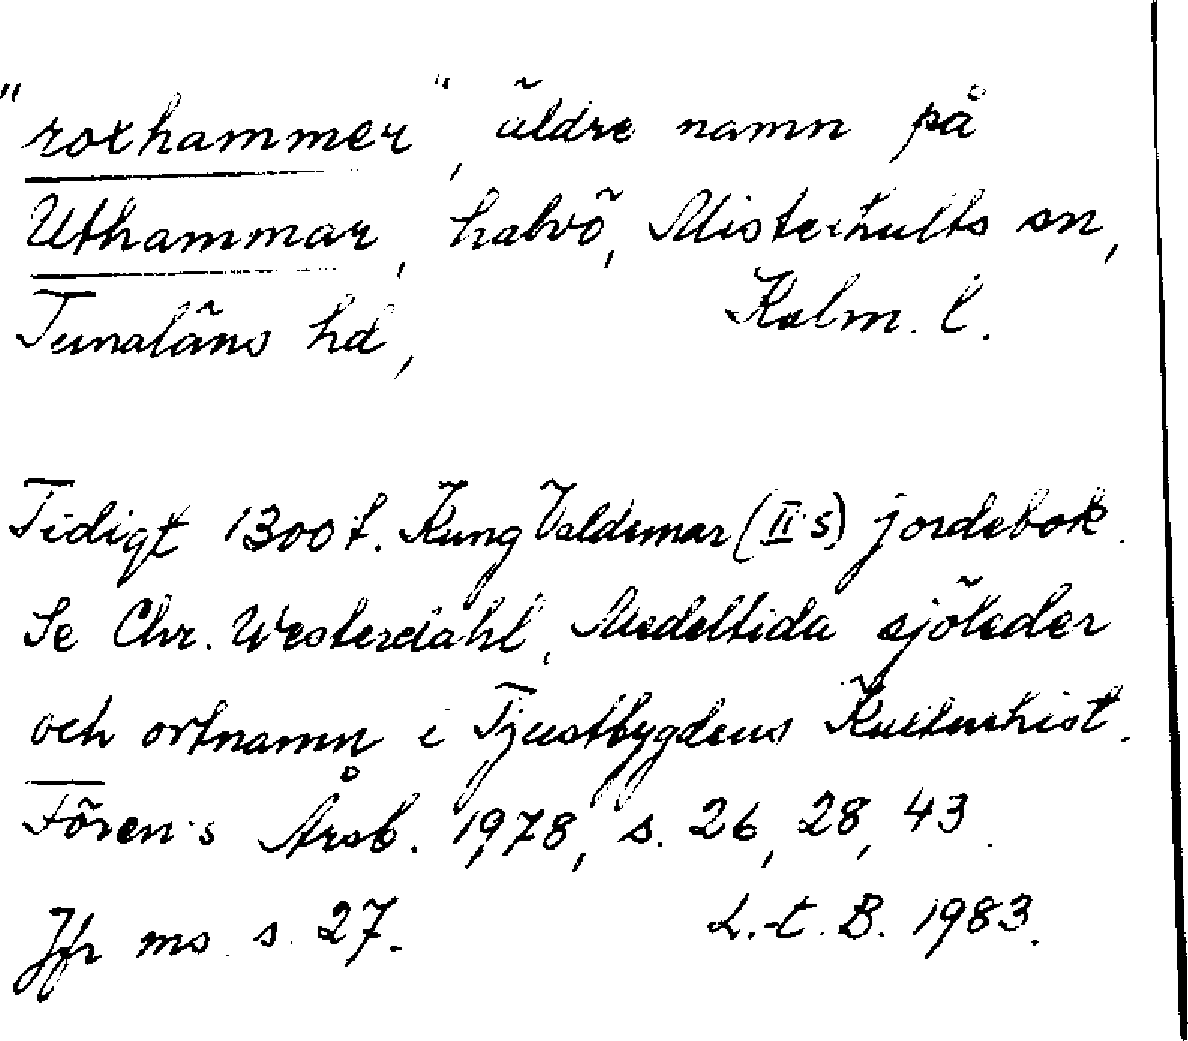 "roxhammer", äldre namn på
Uthammar, halvö, Misterhults sn,
Tunaläns hd, Kalm. l.
Tidigt 1300 t. Kung Valdemar (II:s) jordebok.
Se Chr. Westerdahl, Medeltida sjöleder
och ortnamn i Tjustbygdens Kulturhist.
Fören:s Årsb. 1978, s. 26, 28, 43.
Jfr ms. s. 27. L.t.B. 1983.